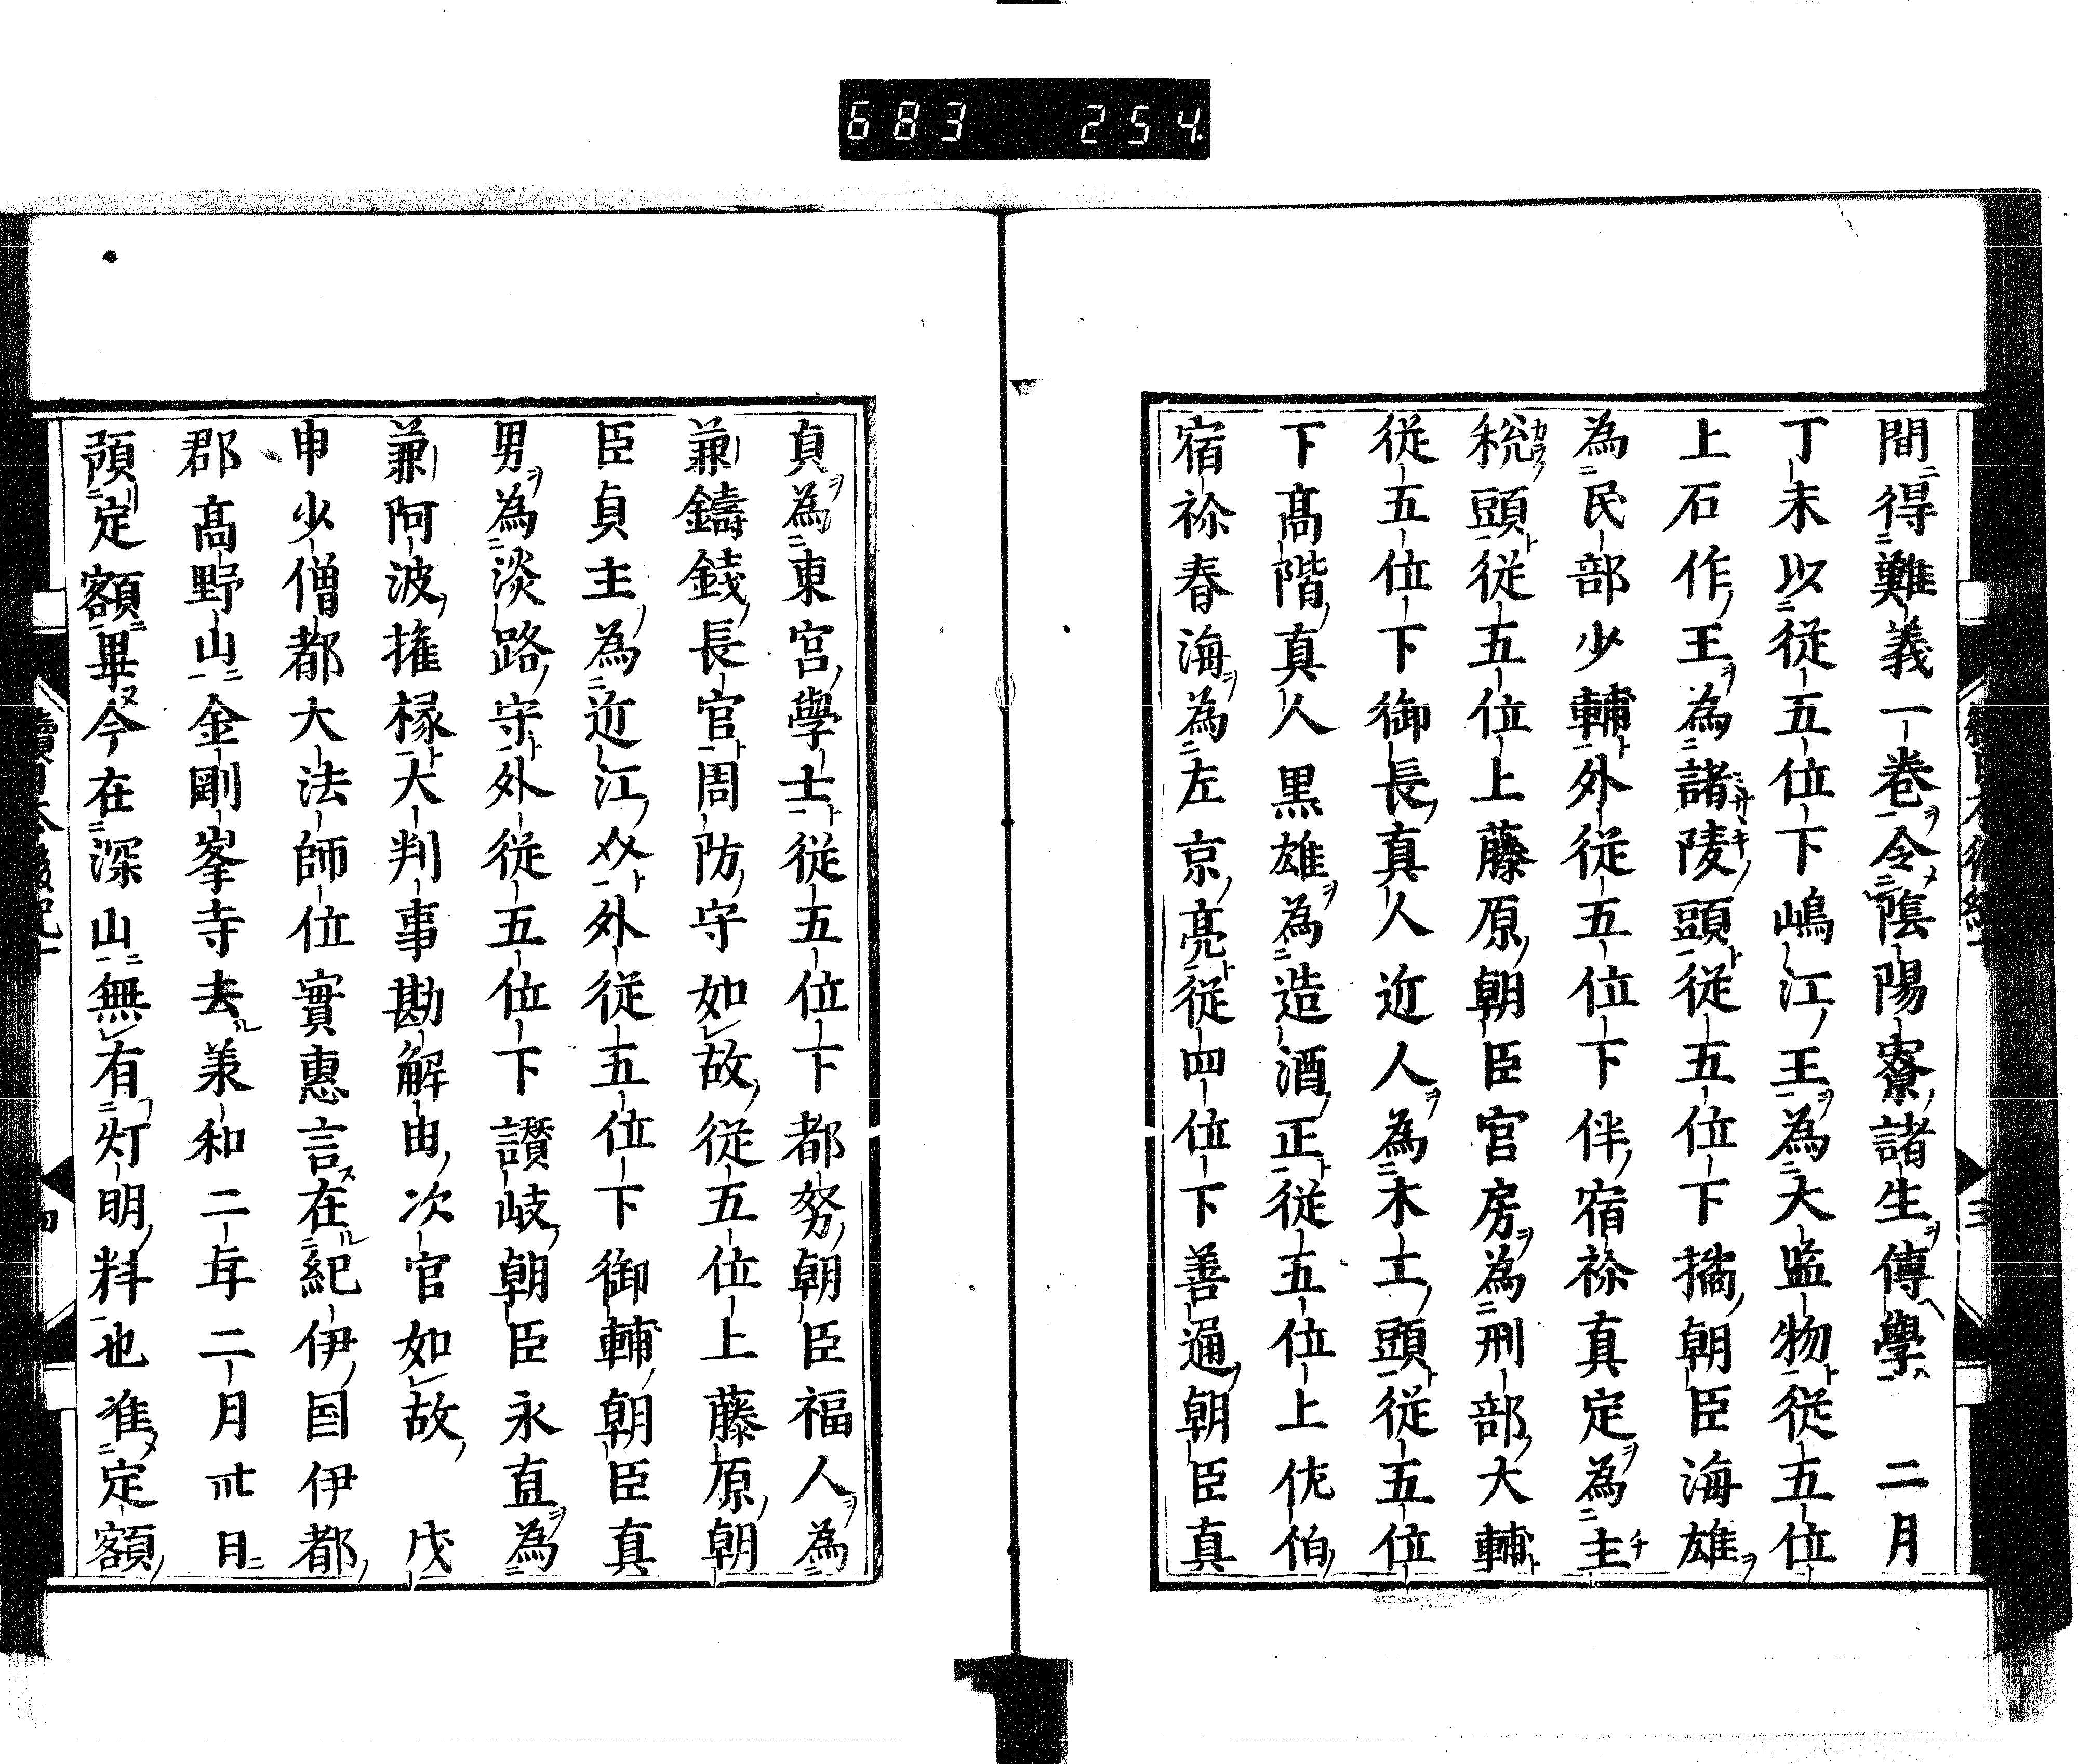 683 254
間得難義一巻令蔭陽寮諸生傳學 二月
丁未以従五位下嶋江王為大監物従五位
上石作王為諸陵頭従五位下橘朝臣海雄
為民部少輔外従五位下伴宿祢真定為主
税頭従五位上藤原朝臣官房為刑部大輔
従五位下御長真人近人為木工頭従五位
下髙階真人黒雄為造酒正従五位上佐伯
宿祢春海為左京亮従四位下善道朝臣真
貞為東宮學士従五位下都努朝臣福人為
兼鑄銭長官周防守如故従五位上藤原朝
臣貞主為近江介外従五位下御輔朝臣真
男為淡路守外従五位下讃岐朝臣永直為
兼阿波權掾大判事勘解由次官如故 戊
申少僧都大法師位實惠言在紀伊国伊都
郡髙野山金剛峯寺去承和二年二月卅日
預定額畢今在深山無有灯明料也准定額